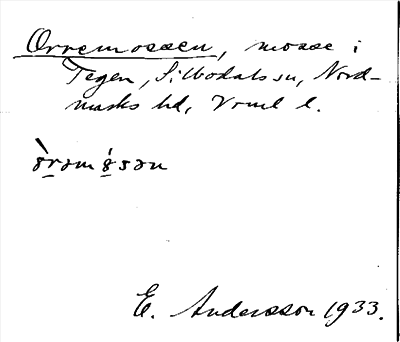 Orremossen, mosse i
Tegen, Silbodals sn, Nord-
marks hd, Vrml l.
òrəmósən
E. Andersson 1933.